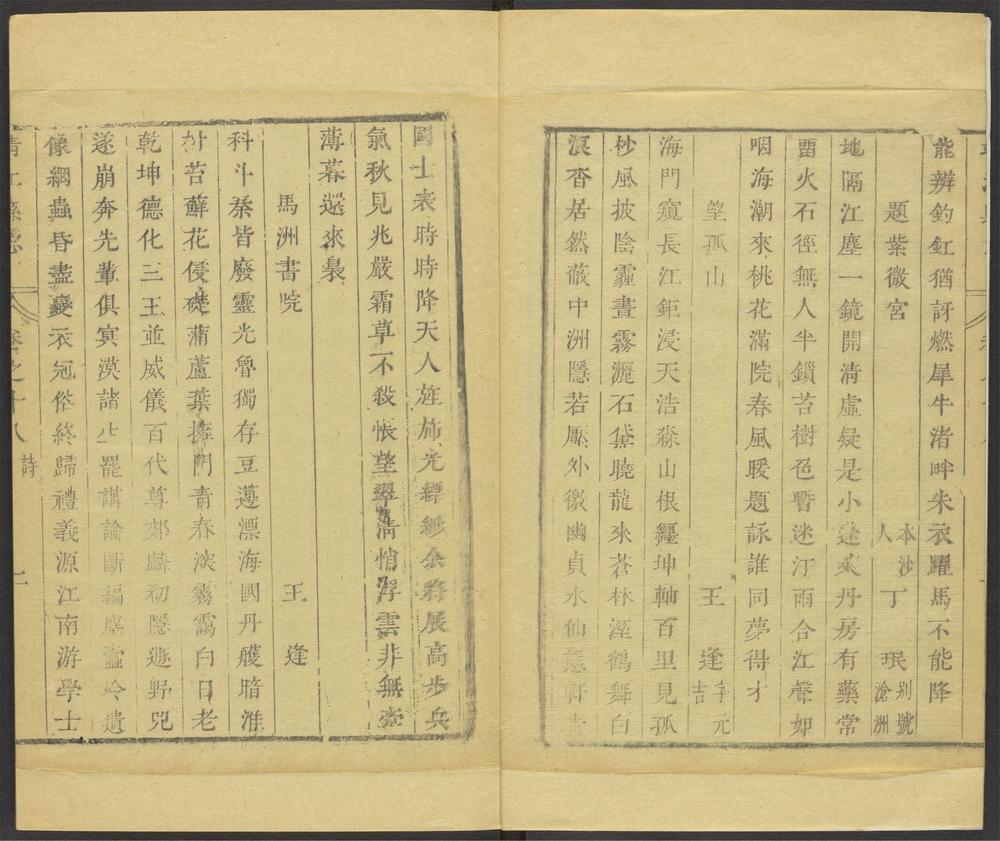 能辨釣魟猶訝燃犀牛渚畔朱衣躍馬不能降
題紫微宮 本沙人 丁珉 别號滄洲
地隔江塵一鏡開清虛疑是小蓬萊丹房有藥常
畱火石徑無人半鎖苔樹色暫迷汀雨合江聲如
咽海潮來桃花滿院春風暖題詠誰同夢得才
望孤山 王逢 字元吉
海門窺長江鉅浸天浩淼山根纒坤軸百里見孤
杪風披陰霾晝霧灑石黛曉龍來蒼林溼鶴舞白
浪杳居然蔽中洲隱若壓外徼幽貞水仙
國士表時時降天人旌斾光縹緲余將展高步兵
氣秋見兆嚴霜草不殺悵望翠淸悄浮雲非無壺
薄暮還來裊
馬洲書院 王逢
科斗秦皆廢靈光魯獨存豆籩漂海國丹雘暗淮
村苔蘚花侵礎蒲蘆葉擁門青春淡霧靄白日老
乾坤德化三王並威儀百代尊郊麟初隱遯野兕
遂崩奔先輩俱冥漠諸生罷講論斷編塵蠹冷遺
像網蟲昏盡變衣冠俗終歸禮義源江南游學士
靖江縣志 卷之十八 詩